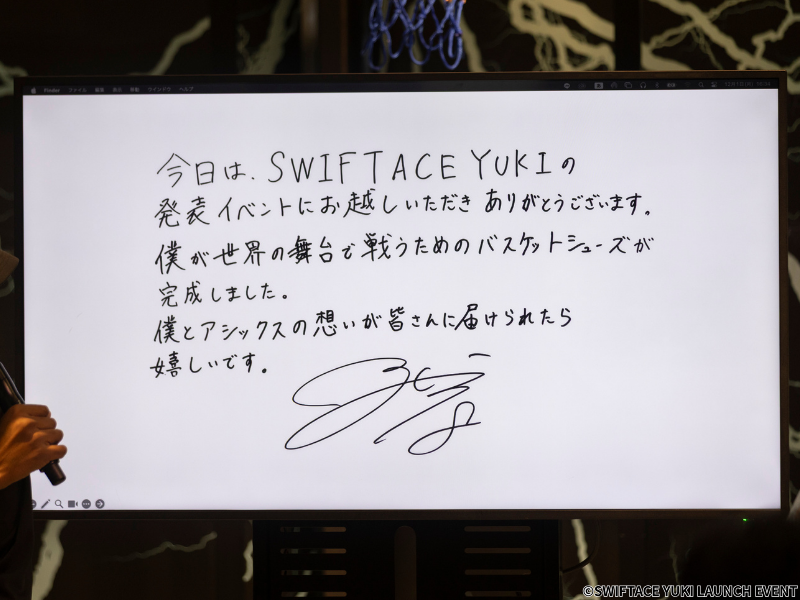 Finder ファイル 編集 表示 移動 ウインドウ ヘルプ
今日は、SWIFTACE YUKIの
発表イベントにお越しいただきありがとうございます。
僕が世界の舞台で戦うためのバスケットシューズが
完成しました。
僕とアシックスの想いが皆さんに届けられたら
嬉しいです。
©SWIFTACE YUKI LAUNCH EVENT